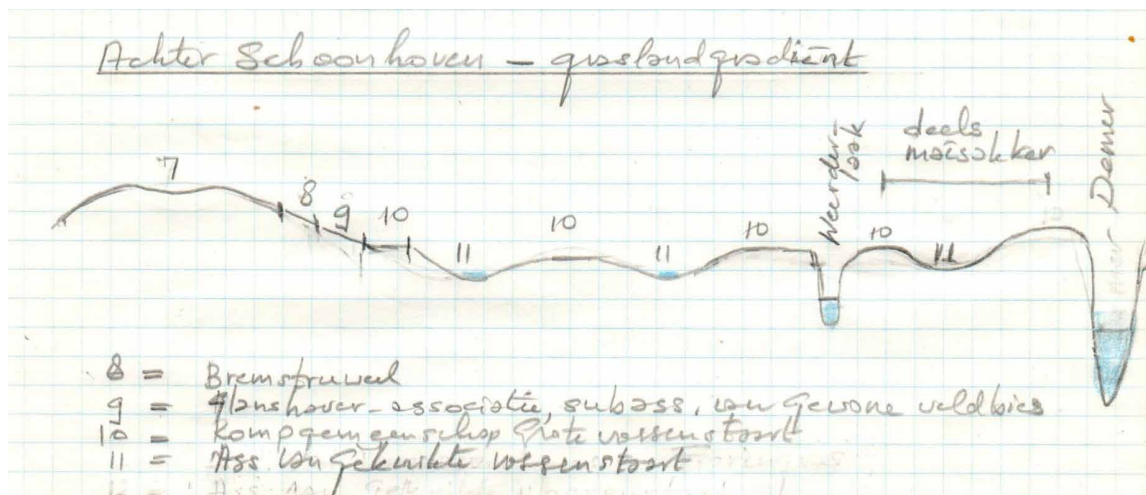 Achter Schoonhoven – graslandgradiënt
7
8
9
10
11
10
11
10
Weerder-
laak
10
11
deels
maïsakker
Demer
8 = Bremstruweel
9 = Glanshaver-associatie, subass. van Gewone veldbies
10 = Rompgemeenschap Grote vossenstaart
11 = Ass van Geknikte vossenstaart